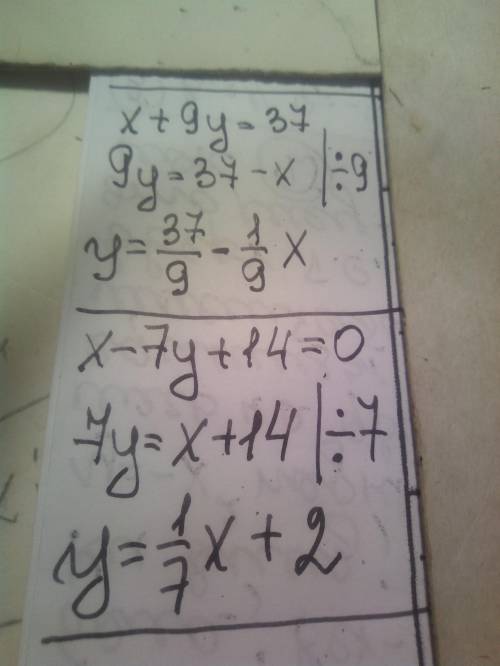 x + 9y = 37
9y = 37 - x | ÷9
y = 37/9 - 1/9 x
x - 7y + 14 = 0
7y = x + 14 | ÷7
y = 1/7 x + 2